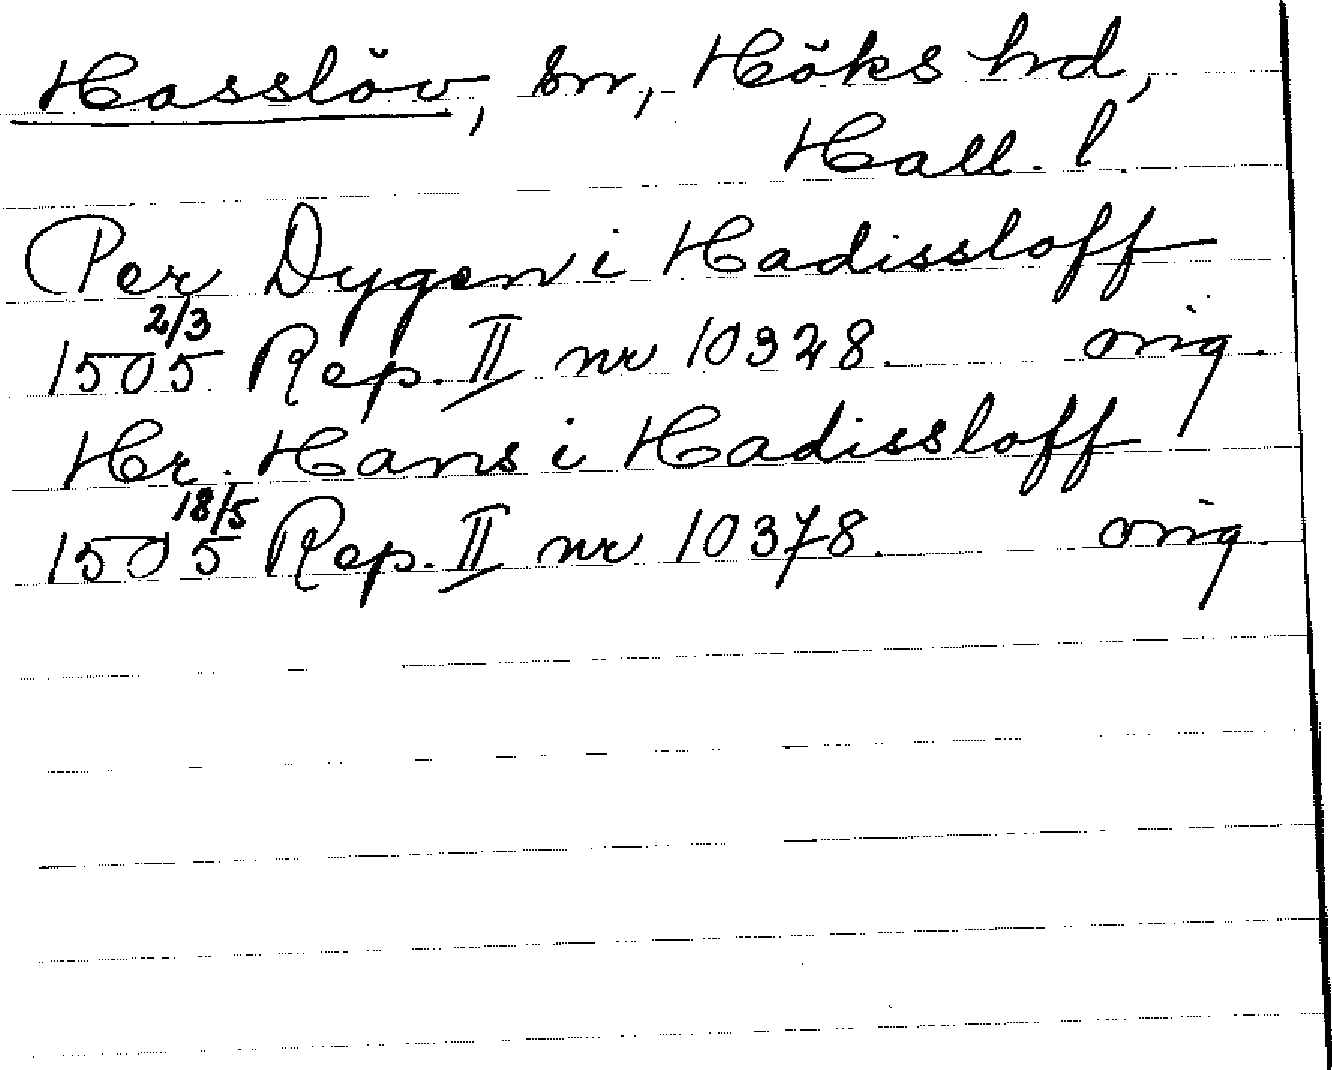 Hasslöv, sn, Höks hd,
Hall. l
Per Dygen i Hadissloff
1505 2/3 Rep. II nr 10328. orig.
Hr. Hans i Hadissloff
1505 18/5 Rep. II nr 10378. orig.